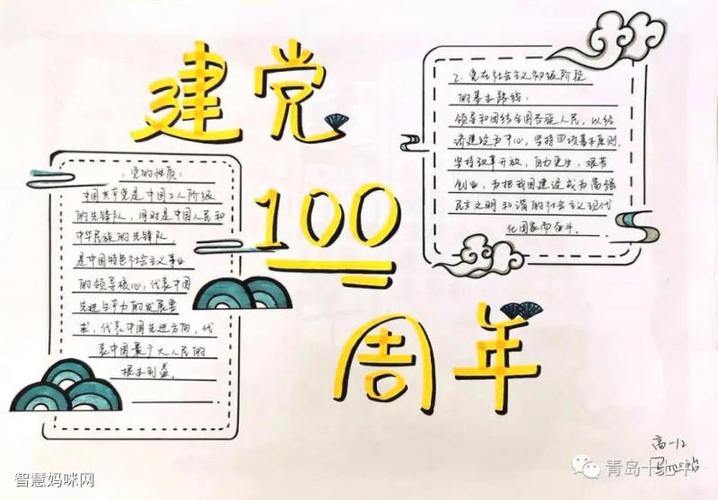 建党
100
周年
1.党的性质:
中国共产党是中国工人阶级
的先锋队,同时是中国人民和
中华民族的先锋队,
是中国特色社会主义事业
的领导核心,代表中国
先进生产力的发展要
求,代表中国先进方向,代
表中国最广大人民的
根本利益。
2.党在社会主义初级阶段
的基本路线:
领导和团结全国各族人民,以经
济建设为中心,坚持四项基本原则,
坚持改革开放,自力更生,艰苦
创业,为把我国建设成为富强
民主文明和谐的社会主义现代
化国家而奋斗。
高一12
智慧妈咪网
青岛十七中